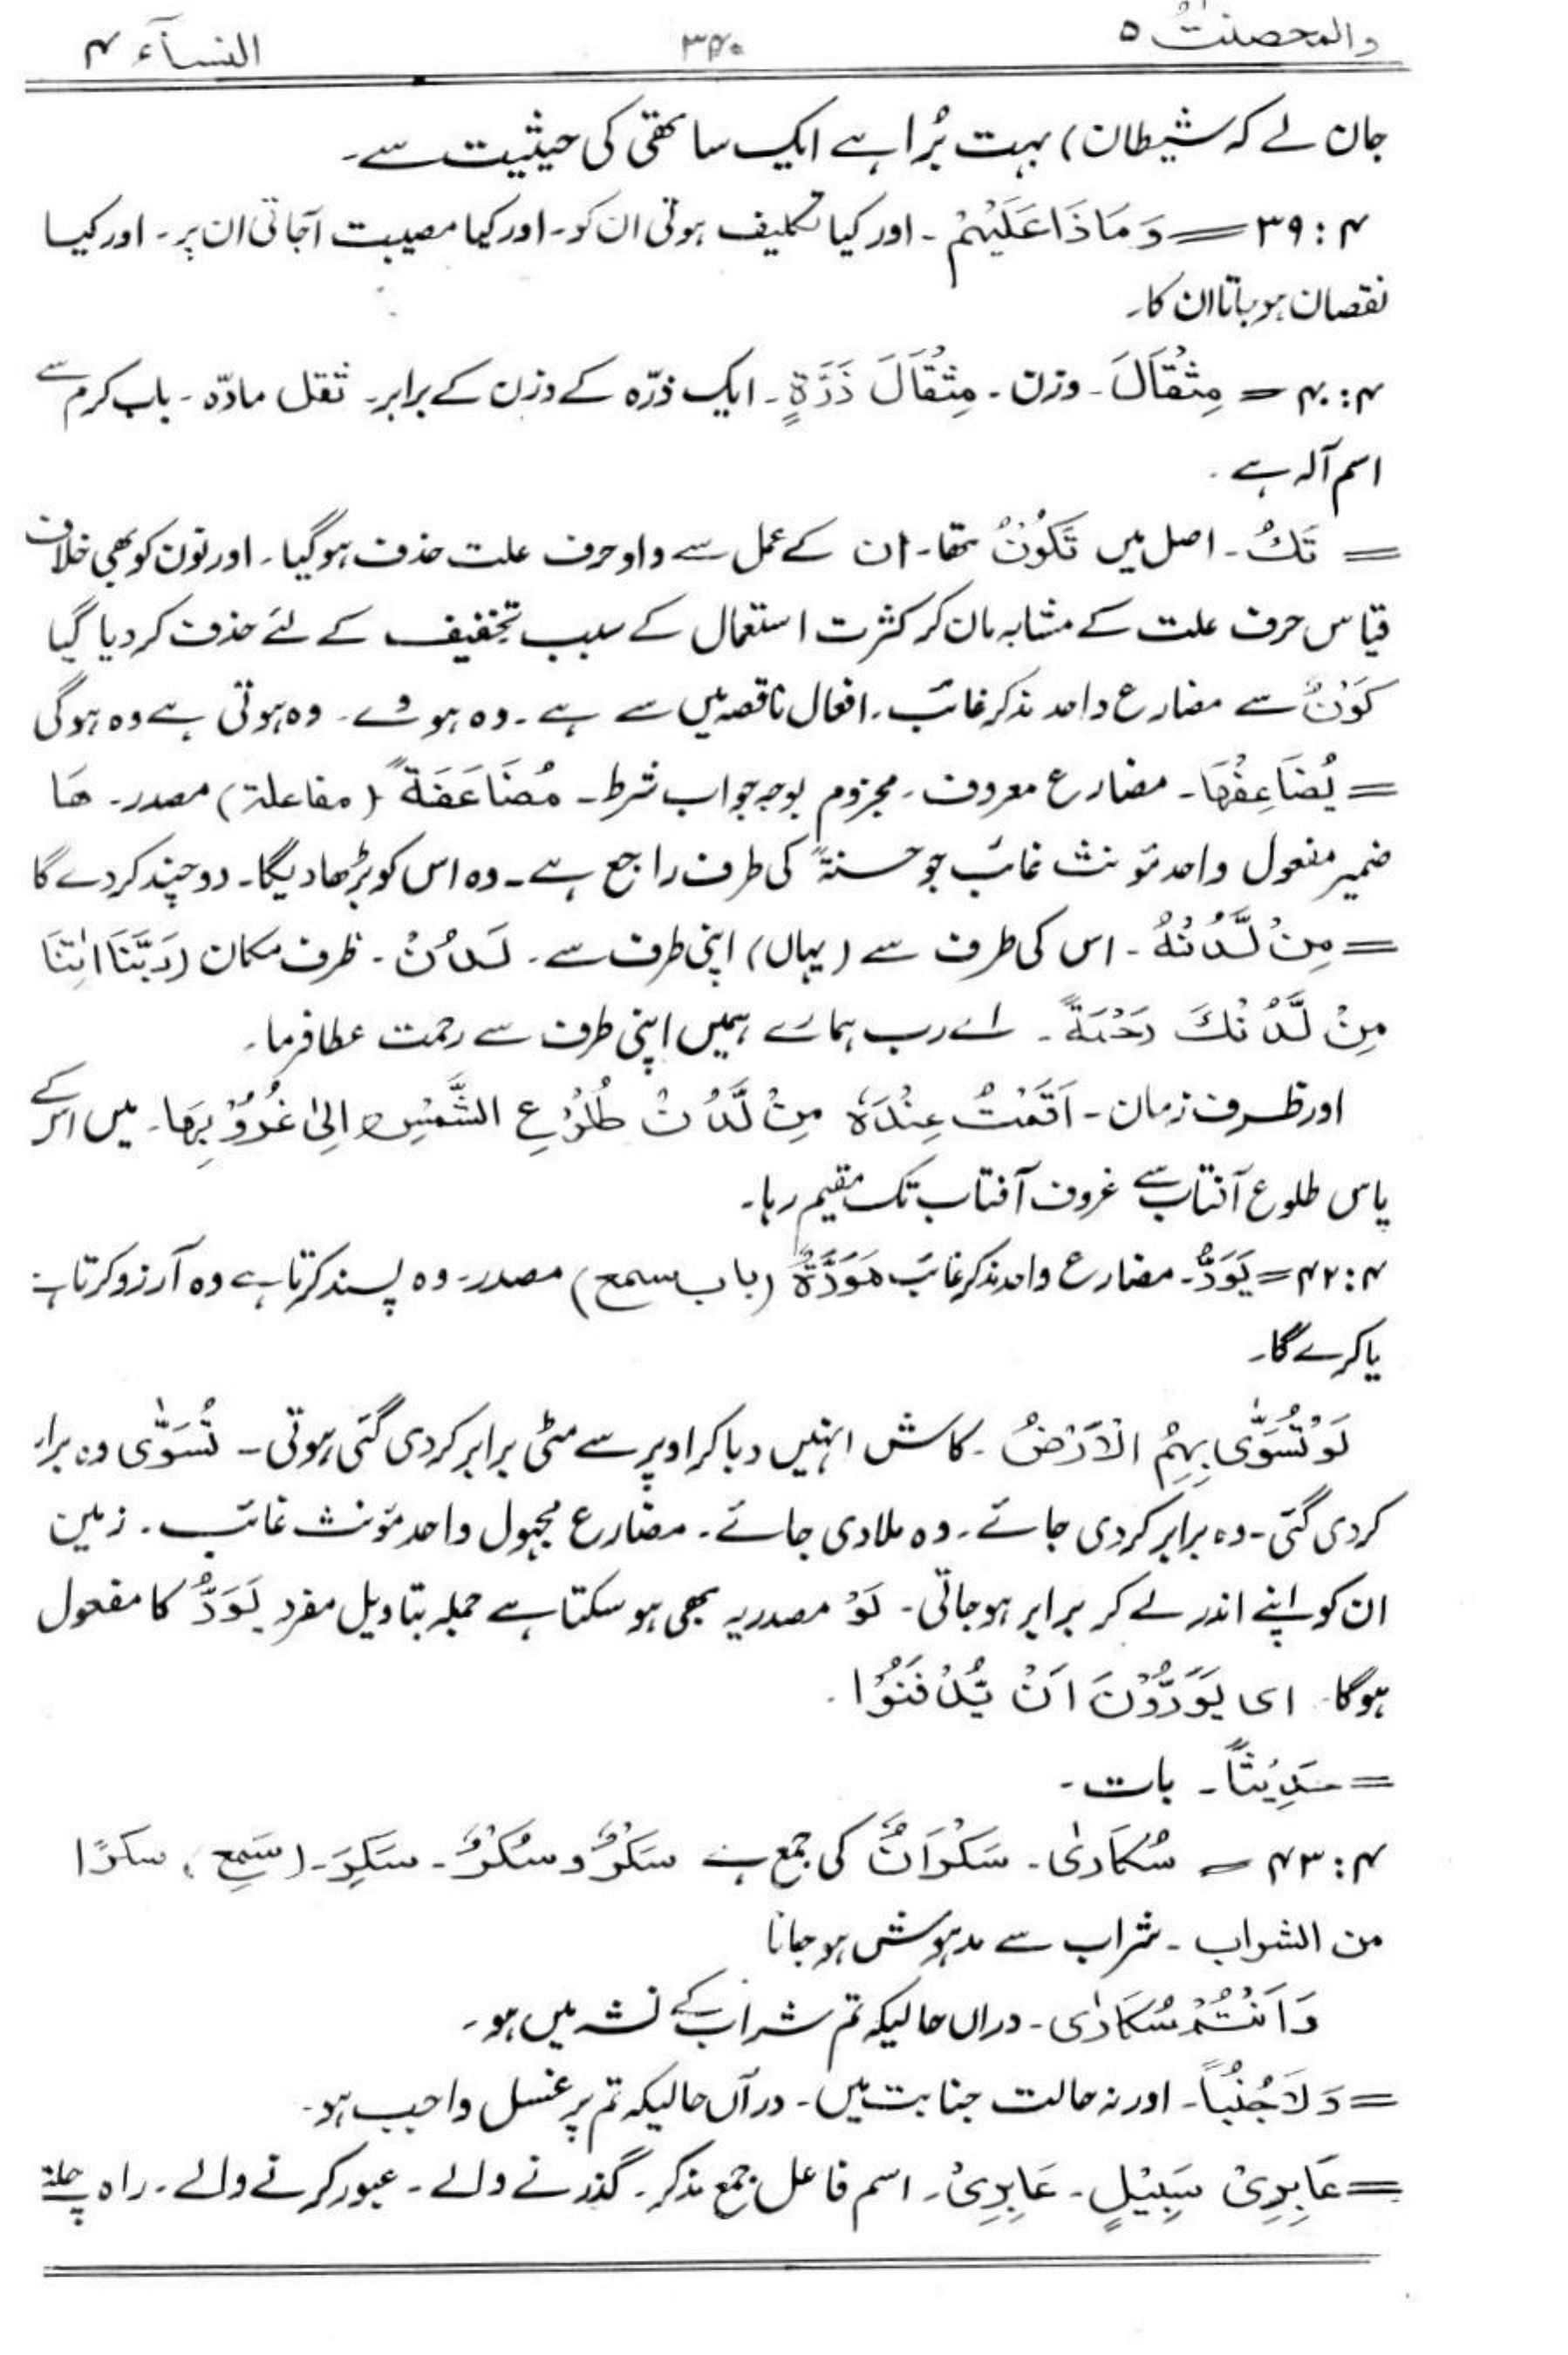 والمحصنٰتُ ۵
۳۴۰
النسآء ۴
جان لے کہ شیطان) بہت بُرا ہے ایک ساتھی کی حیثیت سے۔
۴ : ۳۹ = وَمَاذَا عَلَیْہِمْ ۔ اور کیا تکلیف ہوتی ان کو۔ اور کیا مصیبت آجاتی ان پر۔ اور کیا
نقصان ہوجاتا ان کا۔
۴ : ۴۰ = مِثْقَالَ۔ وزن ۔ مِثْقَالَ ذَرَّۃٍ۔ ایک ذرّہ کے وزن کے برابر۔ ثقل مادّہ ۔ باب کرم سے
اسم آلہ ہے ۔
= تَکُ ۔ اصل میں تَکُوْنُ تھا۔ ان کے عمل سے واؤ حرف علت حذف ہوگیا ۔ اور نون کو بھی خلاف
قیاس حرف علت کے مشابہ مان کر کثرت استعمال کے سبب تخفیف کے لئے حذف کر دیا گیا
کَوْنٌ سے مضارع واحد مذکر غائب ۔ افعال ناقصہ میں سے ہے ۔ وہ ہووے ۔ وہ ہوتی ہے وہ ہوگی
= یُضَاعِفْہَا ۔ مضارع معروف ۔ مجزوم بوجہ جواب شرط ۔ مُضَاعَفَۃً (مفاعلۃ) مصدر۔ ھَا
ضمیر مفعول واحد مؤنث غائب جو حسنۃً کی طرف راجع ہے ۔ وہ اس کو بڑھا دیگا۔ دو چند کر دے گا
= مِنْ لَّدُنْہُ ۔ اس کی طرف سے (یہاں) اپنی طرف سے ۔ لَدُنْ ۔ ظرف مکان (رَبَّنَا اٰتِنَا
مِنْ لَّدُنْکَ رَحْمَۃً ۔ اے رب ہمارے ہمیں اپنی طرف سے رحمت عطا فرما ۔
اور ظرف زمان ۔ اَقَمْتُ عِنْدَہٗ مِنْ لَّدُنْ طُلُوْعِ الشَّمْسِ اِلیٰ غُرُوْبِہَا۔ میں اس کے
پاس طلوع آفتاب سے غروب آفتاب تک مقیم رہا۔
۴ : ۴۲ = یَوَدُّ۔ مضارع واحد مذکر غائب مَوَدَّۃٌ (باب سمع) مصدر۔ وہ پسند کرتا ہے وہ آرزو کرتا ہے
یا کرے گا۔
لَوْ تُسَوّٰی بِہِمُ الْاَرْضُ ۔ کاش انہیں دبا کر اوپر سے مٹی برابر کر دی گئی ہوتی ۔ تُسَوّٰی وہ برابر
کر دی گئی۔ وہ برابر کر دی جائے ۔ وہ ملا دی جائے ۔ مضارع مجہول واحد مؤنث غائب ۔ زمین
ان کو اپنے اندر لے کر برابر ہو جاتی ۔ لَوْ مصدریہ بھی ہو سکتا ہے جملہ بتاویل مفرد یَوَدُّ کا مفعول
ہوگا ۔ ای یَوَدُّوْنَ اَنْ یُّدْفَنُوْا ۔
= حَدِیْثًا ۔ بات ۔
۴ : ۴۳ = سُکَارٰی ۔ سَکْرَانٌ کی جمع ہے سَکْرٌ و سُکْرٌ ۔ سَکِرَ ۔ (سَمِعَ) سکرًا
من الشراب ۔ شراب سے مدہوش ہو جانا
وَاَنْتُمْ سُکَارٰی ۔ دراں حالیکہ تم شراب کے نشہ میں ہو ۔
= وَلَا جُنُبًا ۔ اور نہ حالت جنابت میں ۔ درآں حالیکہ تم پر غسل واجب ہو۔
= عَابِرِیْ سَبِیْلٍ ۔ عَابِرِیْ ۔ اسم فاعل جمع مذکر ۔ گذرنے والے ۔ عبور کرنے والے ۔ راہ چلتے